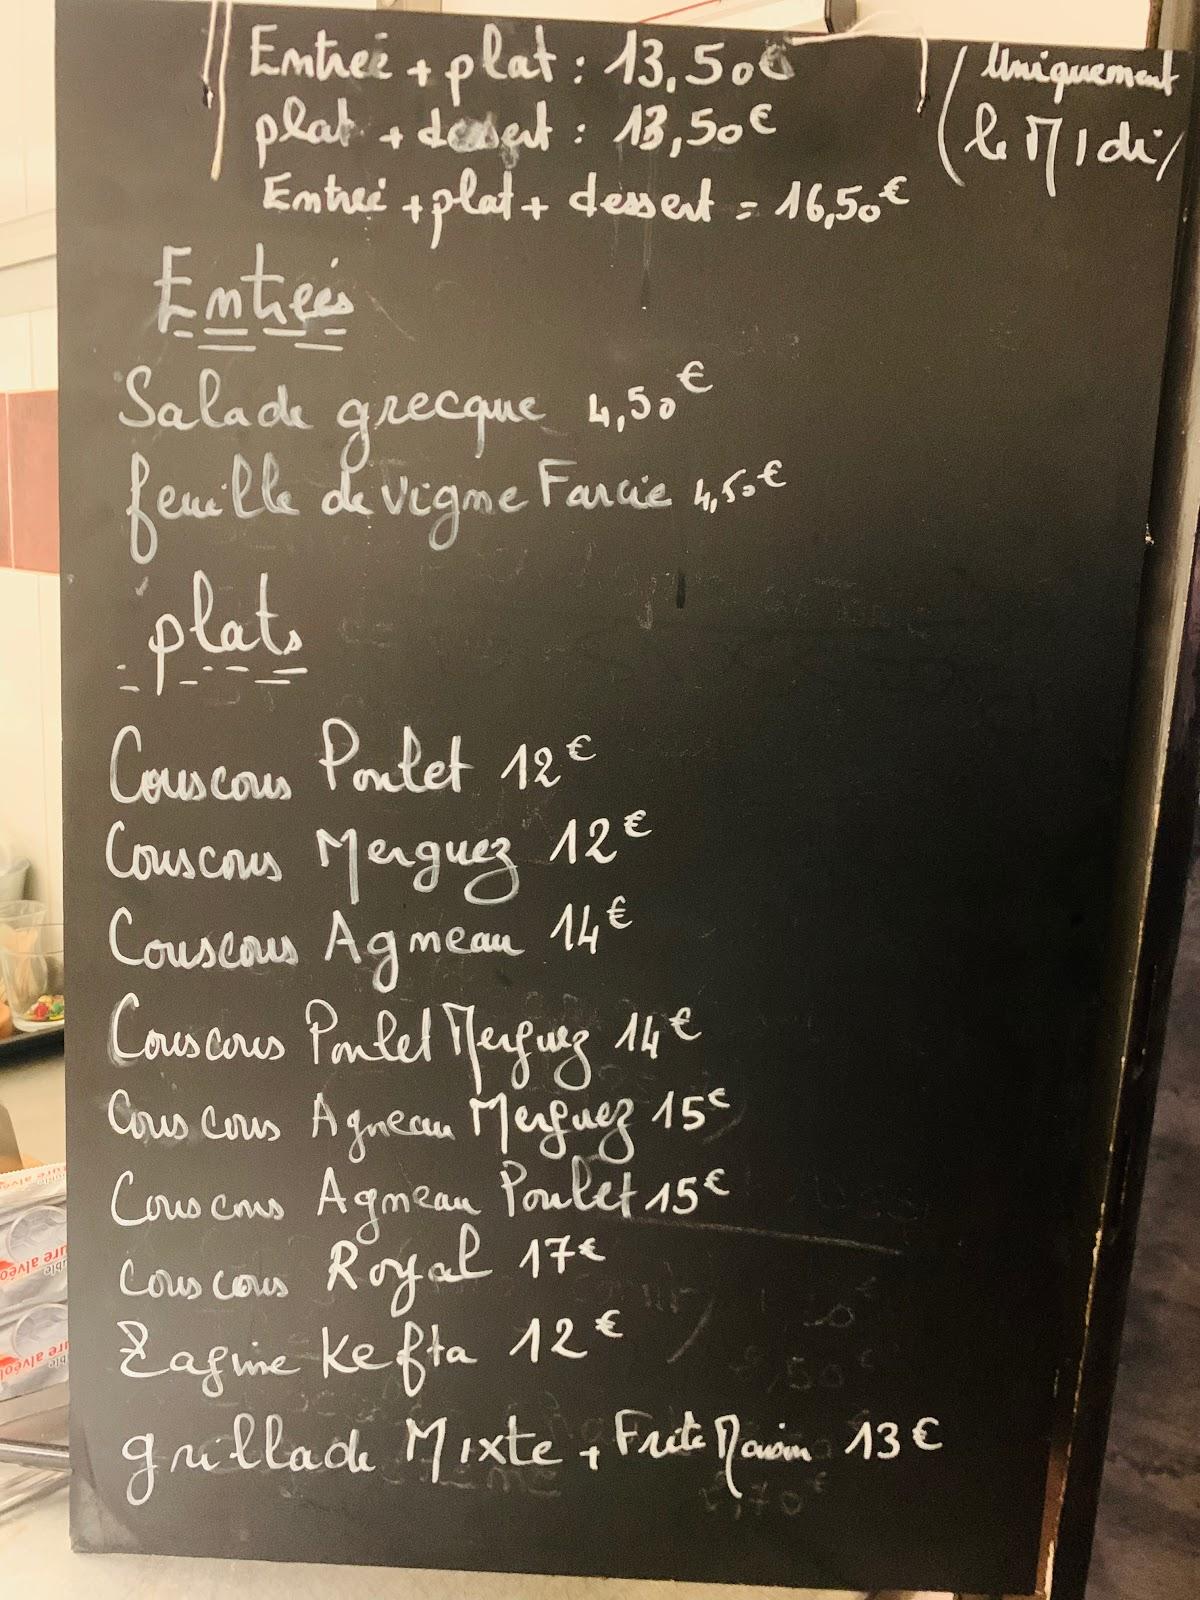 Entreé + plat : 13,50€
(Uniquement
plat + dessert : 13,50€
le MIdi)
Entreé + plat + dessert = 16,50€
Entreés
Salade grecque 4,50€
feuille de vigne Farcie 4,50€
plats
Couscous Poulet 12€
Couscous Merguez 12€
Couscous Agneau 14€
Couscous Poulet Merguez 14€
Couscous Agneau Merguez 15€
Couscous Agneau Poulet 15€
couscous Royal 17€
Tagine Kefta 12€
grillade Mixte + Frite Maison 13€